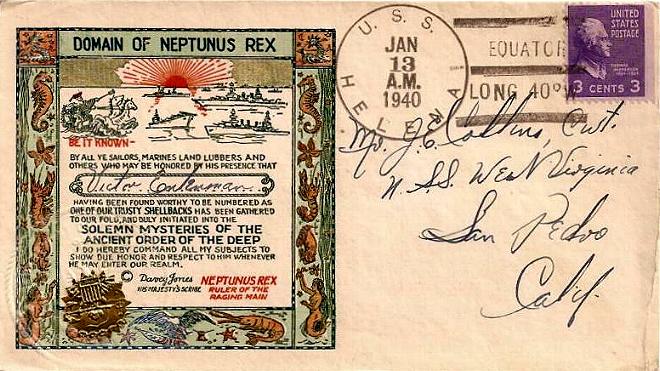 DOMAIN OF NEPTUNUS REX
BE IT KNOWN-
BY ALL YE SAILORS, MARINES LAND LUBBERS AND
OTHERS WHO MAY BE HONORED BY HIS PRESENCE THAT
Victor
HAVING BEEN FOUND WORTHY TO BE NUMBERED AS
ONE OF OUR TRUSTY SHELLBACKS HAS BEEN GATHERED
TO OUR FOLD, AND DULY INITIATED INTO THE
SOLEMN MYSTERIES OF THE
ANCIENT ORDER OF THE DEEP
I DO HEREBY COMMAND ALL MY SUBJECTS TO
SHOW DUE HONOR AND RESPECT TO HIM WHENEVER
HE MAY ENTER OUR REALM.
© Davey Jones
HIS MAJESTY'S SCRIBE
NEPTUNUS REX
RULER OF THE
RAGING MAIN
U.S.S. HELENA
JAN
13
A.M.
1940
EQUATOR
LONG 40° W
UNITED
STATES
POSTAGE
THOMAS
JEFFERSON
3 CENTS 3
Mr. J.C. Collins,
U.S.S. West Virginia
San Pedro
Calif.